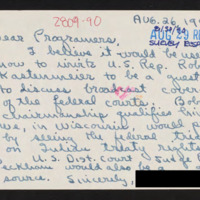 2809-90
AUG. 26, 19
AUG 29 R
Dear Programers,
I believe it would be use
how to invite U.S. Rep. 
Kastenmeier to be a guest
to discuss broadcast cover
of the federal courts. Bob
chairmanship qualifies him
us, in Wisconsin, would
be seeing the federal trial
on Indian treaty rights
U.S. Dist. Court Judge
would also be a
source. Sincerely,